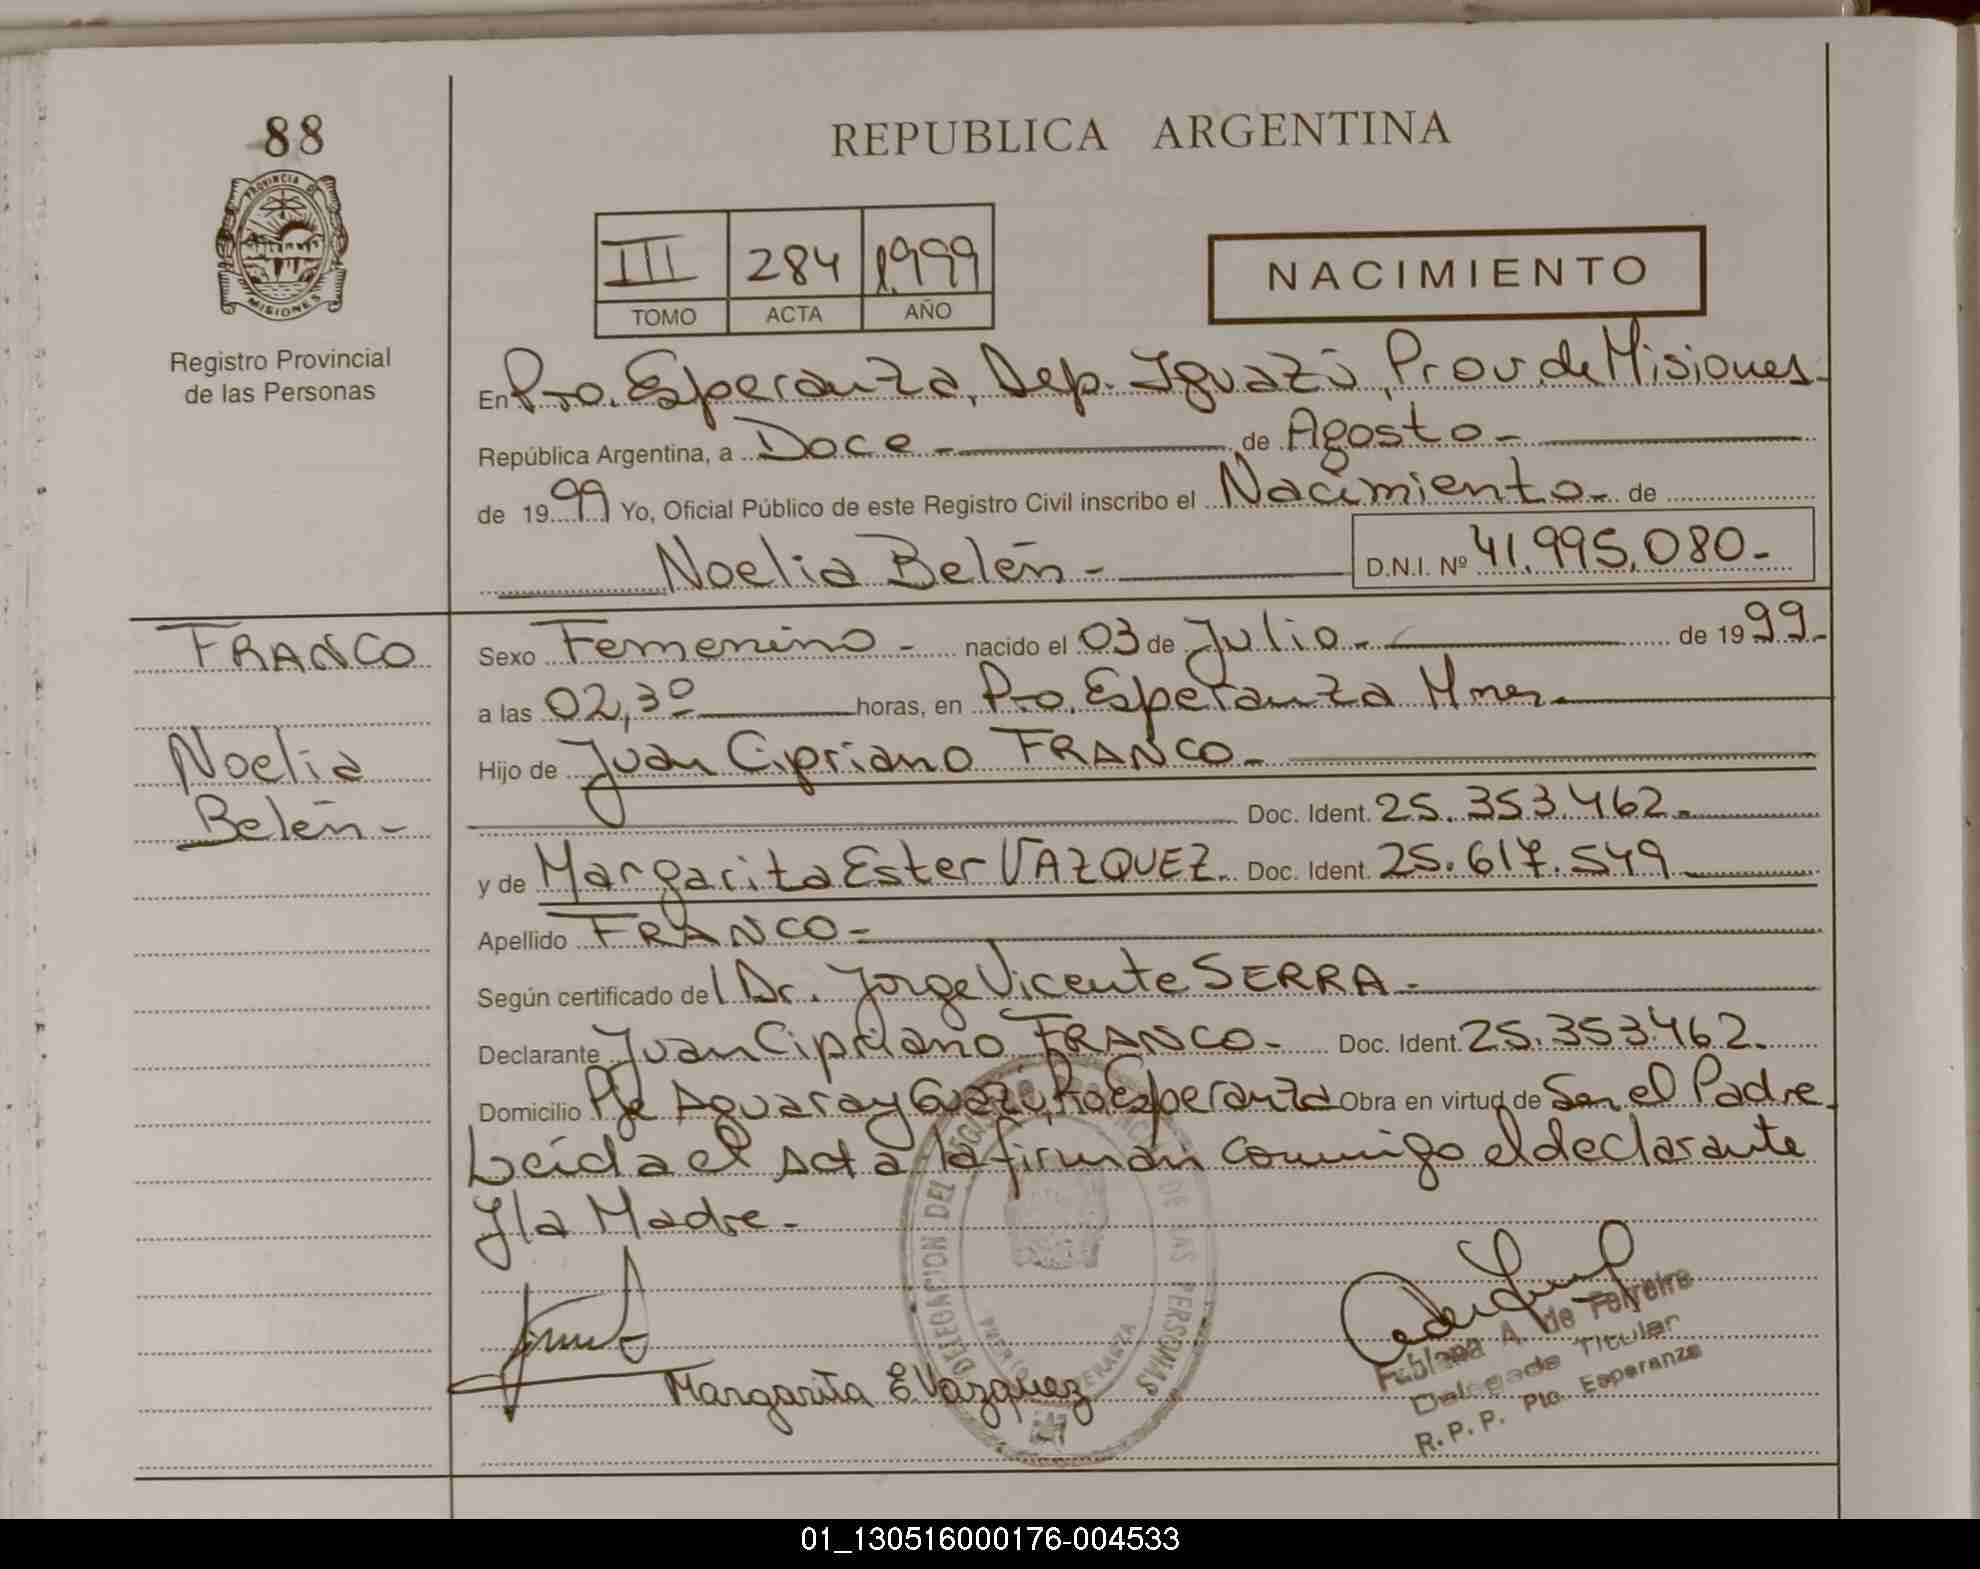 88
PROVINCIA DE
MISIONES
Registro Provincial
de las Personas
REPUBLICA ARGENTINA
III 284 1.999
TOMO ACTA AÑO
NACIMIENTO
En Pto. Esperanza, Dep. Iguazú, Prov. de Misiones.
República Argentina, a Doce - de Agosto -
de 1999 Yo, Oficial Público de este Registro Civil inscribo el Nacimiento - de
Noelia Belén - D.N.I. Nº 41.995.080 -
FRANCO
Noelia
Belén -
Sexo Femenino - nacido el 03 de Julio - de 1999 -
a las 02,30 horas, en Pto. Esperanza Mnes -
Hijo de Juan Cipriano FRANCO -
Doc. Ident. 25.353.462 -
y de Margarita Ester VAZQUEZ. Doc. Ident. 25.617.549
Apellido FRANCO -
Según certificado del Dr. Jorge Vicente SERRA -
Declarante Juan Cipriano FRANCO - Doc. Ident. 25.353.462.
Domicilio Pje Aguaray Guazú, Pto Esperanza Obra en virtud de Ser el Padre.
Leída el Acta la firman conmigo el declarante
y la Madre -
DELEGACION DEL REGISTRO DE LAS PERSONAS
PUERTO ESPERANZA
Margarita E Vazquez
Fabiana A. de Ferreira
Delegada Titular
R. P. P. Pto. Esperanza
01_130516000176-004533